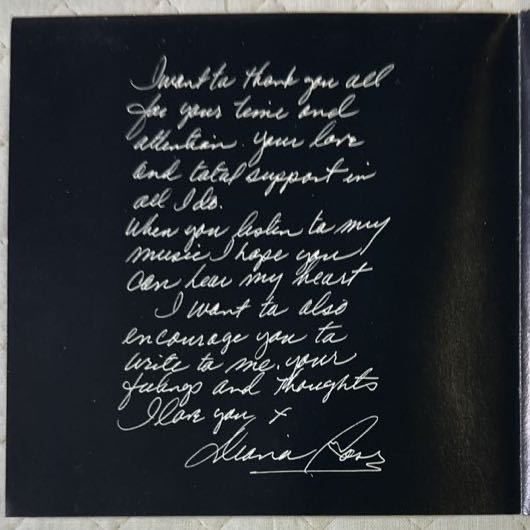 I want to thank you all
for your time and
attention. your love
and total support in
all I do.
When you listen to my
music I hope you
can hear my heart
I want to also
encourage you to
write to me. your
feelings and thoughts
I love you x
Diana Ross